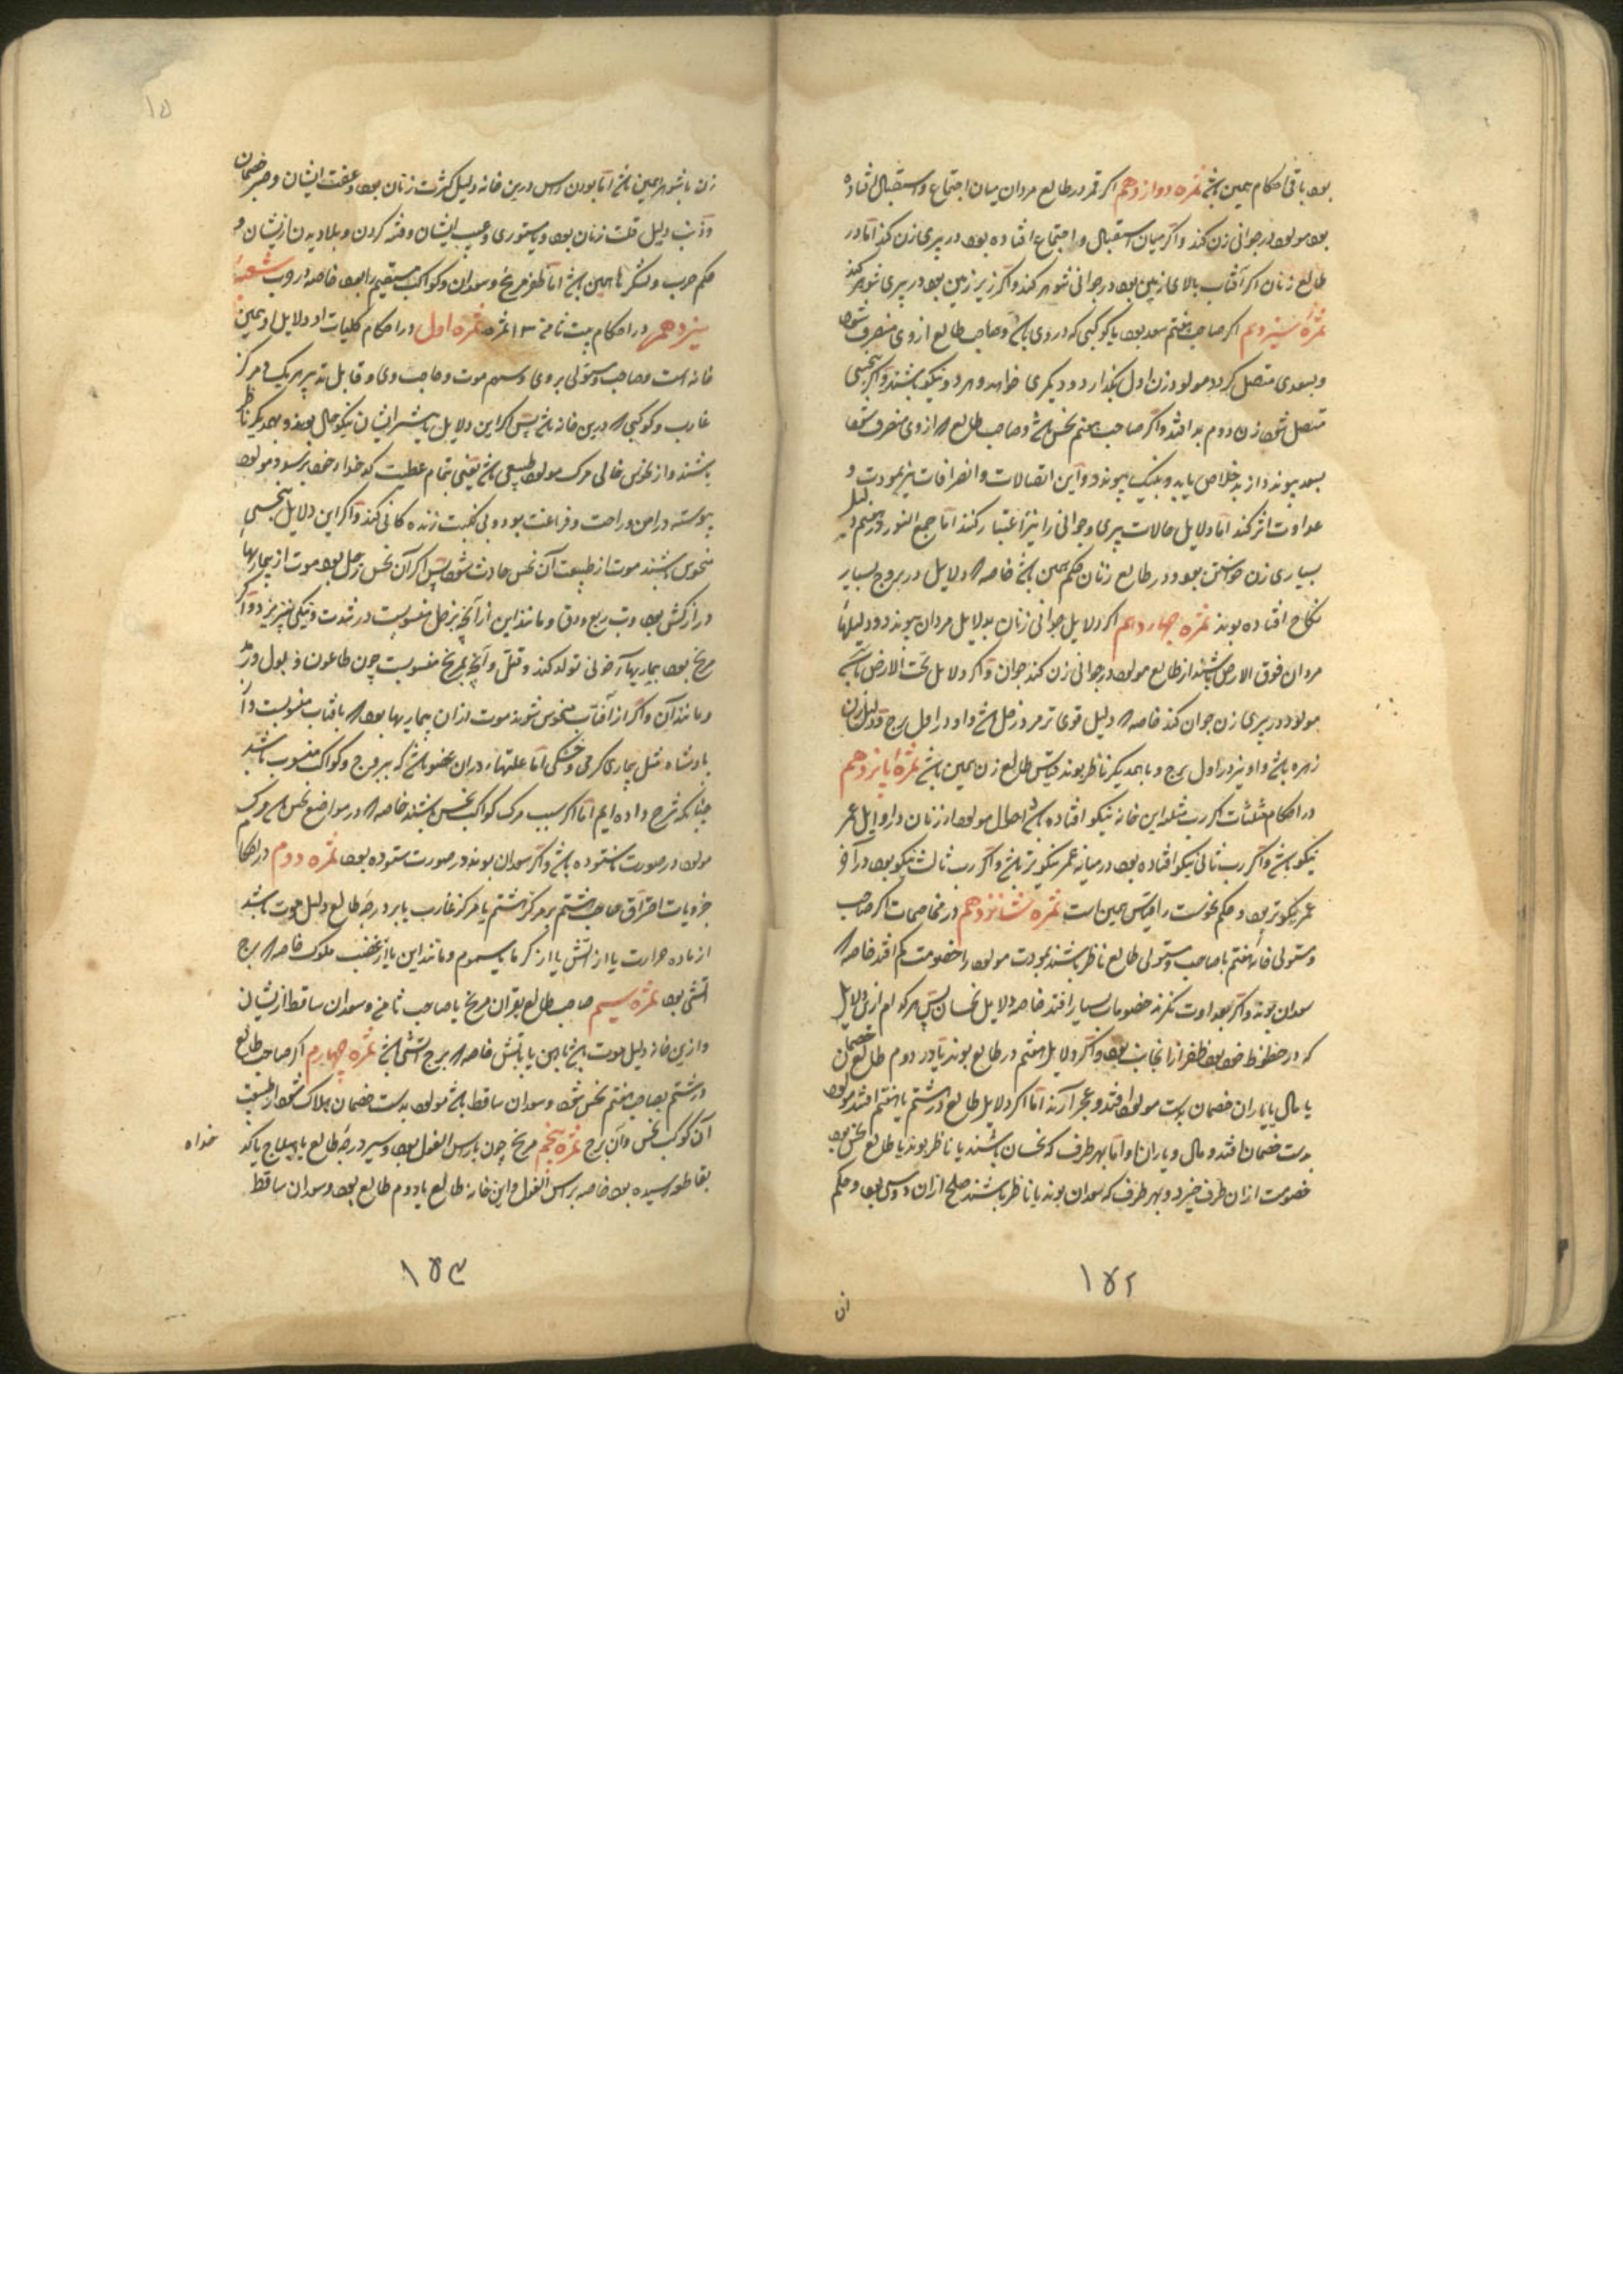 بود باقی احکام همین باشد ثمره دوازدهم اگر قمر در طالع مردان میان اجتماع و استقبال افتاده
بود مولود در جوانی زن کند و اگر میان استقبال و اجتماع افتاده بود در پیری زن کند اما در
طالع زنان اگر آفتاب بالای زمین بود در جوانی شوهر کند و اگر زیر زمین بود در پیری شوهر کند
ثمرهٔ سیزدهم اگر صاحب هفتم سعد بود یا کوکبی که در وی باشد و صاحب طالع از وی منصرف شود
و بسعدی متصل گردد مولود زن اول بگذارد و دیگری خواهد و هر دو نیکو باشند و اگر بنحسی
متصل شود زن دوم بد افتد و اگر صاحب هفتم نحس باشد و صاحب طالع از وی منصرف شود
بسعد پیوندد از بد خلاص یابد و بنیک پیوندد و این اتصالات و انصرافات نیز بمودت و
عداوت اثر کند اما دلایل حالات پیری و جوانی را نیز اعتبار کنند اما جمع النور در هفتم دلیل
بسیاری زن خواستن بود و در طالع زنان حکم همین باشد خاصه دلایل در بروج بسیار
نکاح افتاده بوند ثمره چهاردهم اگر دلایل جوانی زنان بدلایل مردان پیوندد و دلیلها
مردان فوق الارض باشند از طالع مولود در جوانی زن کند جوان و اگر دلایل تحت الارض باشد
مولود در پیری زن جوان کند خاصه دلیل قوی تر مرد زحل باشد و او در اول برج و دلیل زن
زهره باشد و او نیز در اول برج و با همدیگر ناظر بوند قیاس طالع زن همین باشد ثمرهٔ پانزدهم
در احکام مثلثات اگر رب مثلثه این خانه نیکو افتاده باشد احوال مولود از زنان در اوایل عمر
نیکو باشد و اگر رب ثانی نیکو افتاده بود در میانه عمر نیکوتر باشد و اگر رب ثالث نیکو بود در آخر
عمر نیکوتر بود و حکم نحوست را قیاس همین است ثمره شانزدهم در مخاصمات اگر صاحب
و مستولی خانه هفتم با صاحب و مستولی طالع ناظر باشند بمودت مولود را خصومت کم افتد خاصه
سعدان بوند و اگر بعداوت نگرند خصومات بسیار افتد خاصه دلایل نحسان پس هر کدام ازین دلایل
که در حظوظ خود بود ظفر از آنجانب بود و اگر دلایل هفتم در طالع بوند یا در دوم طالع خصمان
یا مال یا یاران خصمان بدست مولود افتد و عجز آرند اما اگر دلایل طالع در هشتم یا هفتم افتند مولود
بدست خصمان افتد و مال و یاران او اما بهر طرف که نحسان باشند یا ناظر بوند یا طالع نحس بود
خصومت از آن طرف خیزد و بهر طرف که سعدان بوند یا ناظر باشند صلح از آن دوسی بود و حکم
۱۵۲
ان
۱۵
زن با شوهر همین باشد اما بودن راس درین خانه دلیل کثرت زنان بود و عفت ایشان و خیر خصمان
و ذنب دلیل قلت زنان بود و مستوری و عیب ایشان و فتنه کردن و بلا دیدن ازیشان و
حکم حرب و لشکرها همین باشد اما ظفر مریخ و سعدان و کواکب مستقیم را بود خاصه در وب شعبهٔ
سیزدهم در احکام بیت ثامن ۱۳ ثمره ثمره اول در احکام کلیات او و دلایل او همین
خانه است و صاحب و مستولی بر وی و سهم موت و صاحب وی و قابل تدبیر هر یک و مرکز
غارب و کوکبی درین خانه باشد پس اگر این دلایل یا بیشتر ایشان نیکو حال بوند و بهمدیگر ناظر
باشند و از نحوس خالی مرگ مولود طبیعی باشد یعنی بتمام عطیت کدخداه خود برسد و مولود
پیوسته در امن و راحت و فراغت بود و بی نکبت زنده کانی کند و اگر این دلایل بنحسی
منحوس باشند موت از طبیعت آن نحس حادث شود پس اگر آن نحس زحل بود موت از بیماریهاء
دراز کش بود و تب ربع و دق و مانند این از آنچ بزحل منسوبست در شدت و نیکی نیز بریزد و اگر
مریخ بود بیماریهاء خونی تولد کند و قتل و آنچ بمریخ منسوبست چون طاعون و بول و درد
و مانند آن و اگر از آفتاب منحوس شوند موت از آن بیماریها بود بآفتاب منسوبست و از
پادشاه مثل بیماری گرمی و خشکی اما علتهاء در آن عضو باشد که ببروج و کواکب منسوب باشد
چنانکه شرح داده ایم اما اگر سبب مرگ کواکب نحس باشند خاصه در مواضع نحس مرگ
مولود در صورت ناستوده باشد و اگر سعدان بوند در صورت ستوده بود ثمره دوم در احکام
جزویات احتراق صاحب هشتم بر مرکز هشتم یا مرکز غارب یا بر درجهٔ طالع دلیل موت باشد
از ماده حرارت یا از آتش یا از گرما یا سموم و مانند این یا از غضب ملوک خاصه برج
آتشی بود ثمره سیم صاحب طالع بقران مریخ یا صاحب ثامن و سعدان ساقط ازیشان
و ازین خانه دلیل موت باشد بآهن یا بآتش خاصه برج آتشی باشد ثمره چهارم اگر صاحب طالع
در هشتم بصاحب هفتم نحس شود و سعدان ساقط باشد مولود بدست خصمان هلاک شود از طبیعت
آن کوکب نحس و آن برج ثمره پنجم مریخ چون با راس الغول بود و سیر درجهٔ طالع یا هیلاج یا کد
خداه
بقاطع رسیده بود خاصه براس الغول و این خانه طالع یا دوم طالع بود و سعدان ساقط
۱۵۳